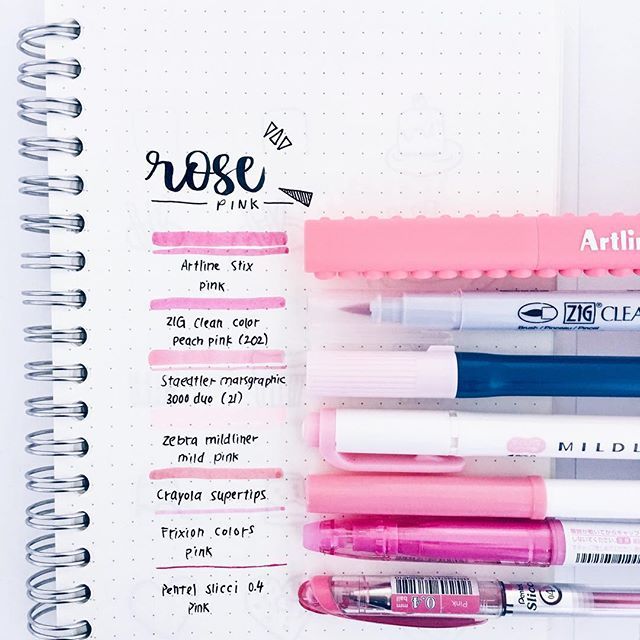 rose
PINK
Artline Stix
pink
ZIG Clean color
peach pink (202)
Staedtler marsgraphic
3000 duo (21)
Zebra mildliner
mild pink
Crayola supertips
Frixion Colors
pink
Pentel Slicci 0.4
Pink
Artlin
ZIG® CLEA
Brush / Pinceau / Pincel
MILDL
Pink
0.4
mm
ball
Pentel
Slicci
04